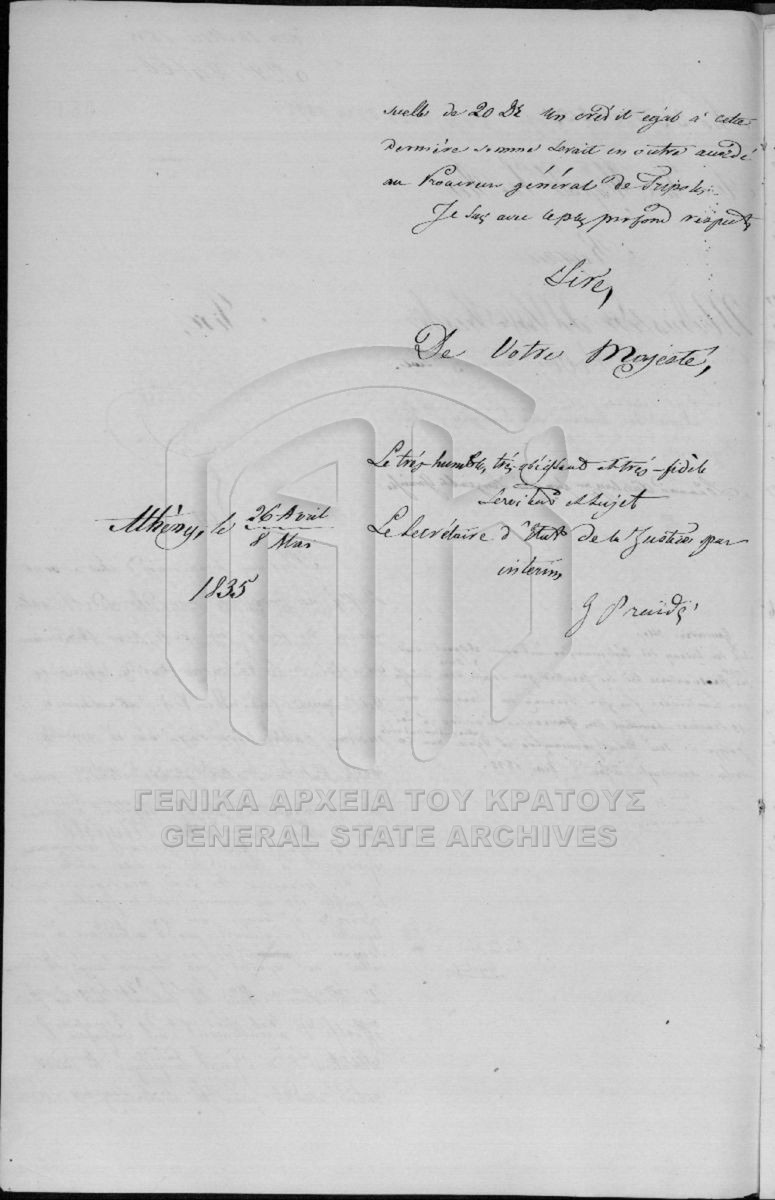 suelle de 20 Dr. Un crédit égal à cette
dernière somme serait en outre accordé
au Procureur général de Tripolis.
Je suis avec le plus profond respect,
Sire,
De Votre Majesté,
Le très-humble, très-obéissant et très-fidèle
Serviteur et Sujet
Le Secrétaire d'État de la Justice par
interim,
G Praïdis
Athènes, le 26 Avril
8 Mai
1835
ΓΕΝΙΚΑ ΑΡΧΕΙΑ ΤΟΥ ΚΡΑΤΟΥΣ
GENERAL STATE ARCHIVES